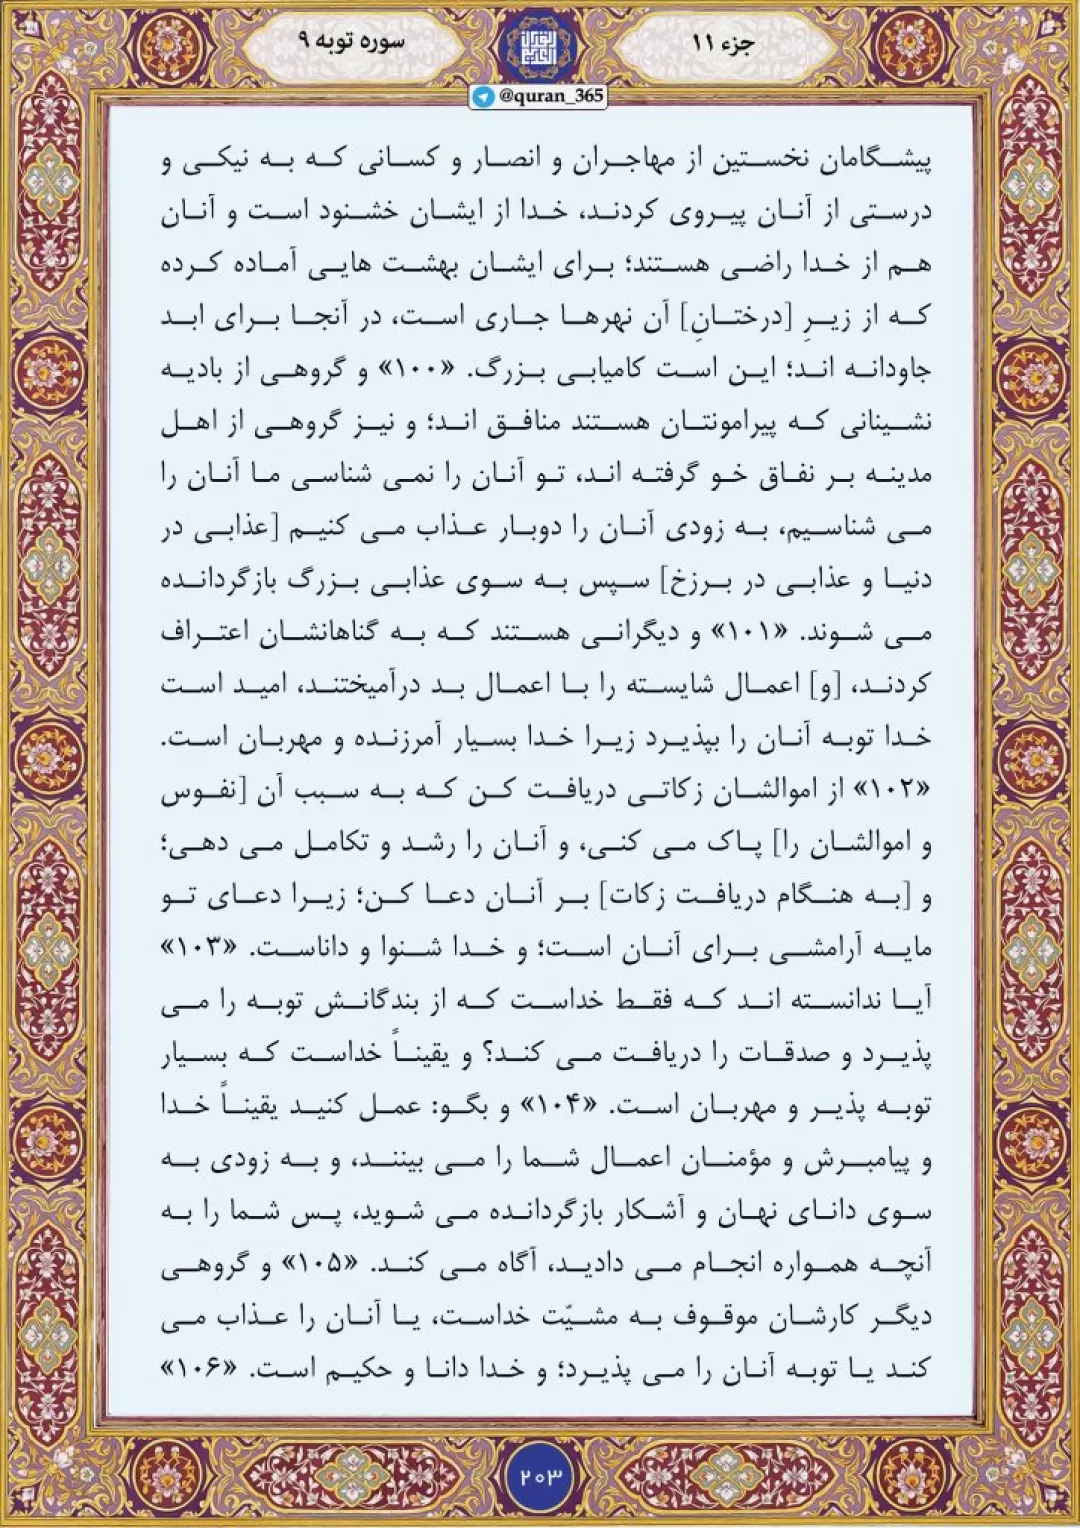 جزء ۱۱
سوره توبه ۹
@quran_365
پیشگامان نخستین از مهاجران و انصار و کسانی که به نیکی و
درستی از آنان پیروی کردند، خدا از ایشان خشنود است و آنان
هم از خدا راضی هستند؛ برای ایشان بهشت هایی آماده کرده
که از زیرِ [درختانِ] آن نهرها جاری است، در آنجا برای ابد
جاودانه اند؛ این است کامیابی بزرگ. «۱۰۰» و گروهی از بادیه
نشینانی که پیرامونتان هستند منافق اند؛ و نیز گروهی از اهل
مدینه بر نفاق خو گرفته اند، تو آنان را نمی شناسی ما آنان را
می شناسیم، به زودی آنان را دوبار عذاب می کنیم [عذابی در
دنیا و عذابی در برزخ] سپس به سوی عذابی بزرگ بازگردانده
می شوند. «۱۰۱» و دیگرانی هستند که به گناهانشان اعتراف
کردند، [و] اعمال شایسته را با اعمال بد درآمیختند، امید است
خدا توبه آنان را بپذیرد زیرا خدا بسیار آمرزنده و مهربان است.
«۱۰۲» از اموالشان زکاتی دریافت کن که به سبب آن [نفوس
و اموالشان را] پاک می کنی، و آنان را رشد و تکامل می دهی؛
و [به هنگام دریافت زکات] بر آنان دعا کن؛ زیرا دعای تو
مایه آرامشی برای آنان است؛ و خدا شنوا و داناست. «۱۰۳»
آیا ندانسته اند که فقط خداست که از بندگانش توبه را می
پذیرد و صدقات را دریافت می کند؟ و یقیناً خداست که بسیار
توبه پذیر و مهربان است. «۱۰۴» و بگو: عمل کنید یقیناً خدا
و پیامبرش و مؤمنان اعمال شما را می بینند، و به زودی به
سوی دانای نهان و آشکار بازگردانده می شوید، پس شما را به
آنچه همواره انجام می دادید، آگاه می کند. «۱۰۵» و گروهی
دیگر کارشان موقوف به مشیّت خداست، یا آنان را عذاب می
کند یا توبه آنان را می پذیرد؛ و خدا دانا و حکیم است. «۱۰۶»
۲۰۳